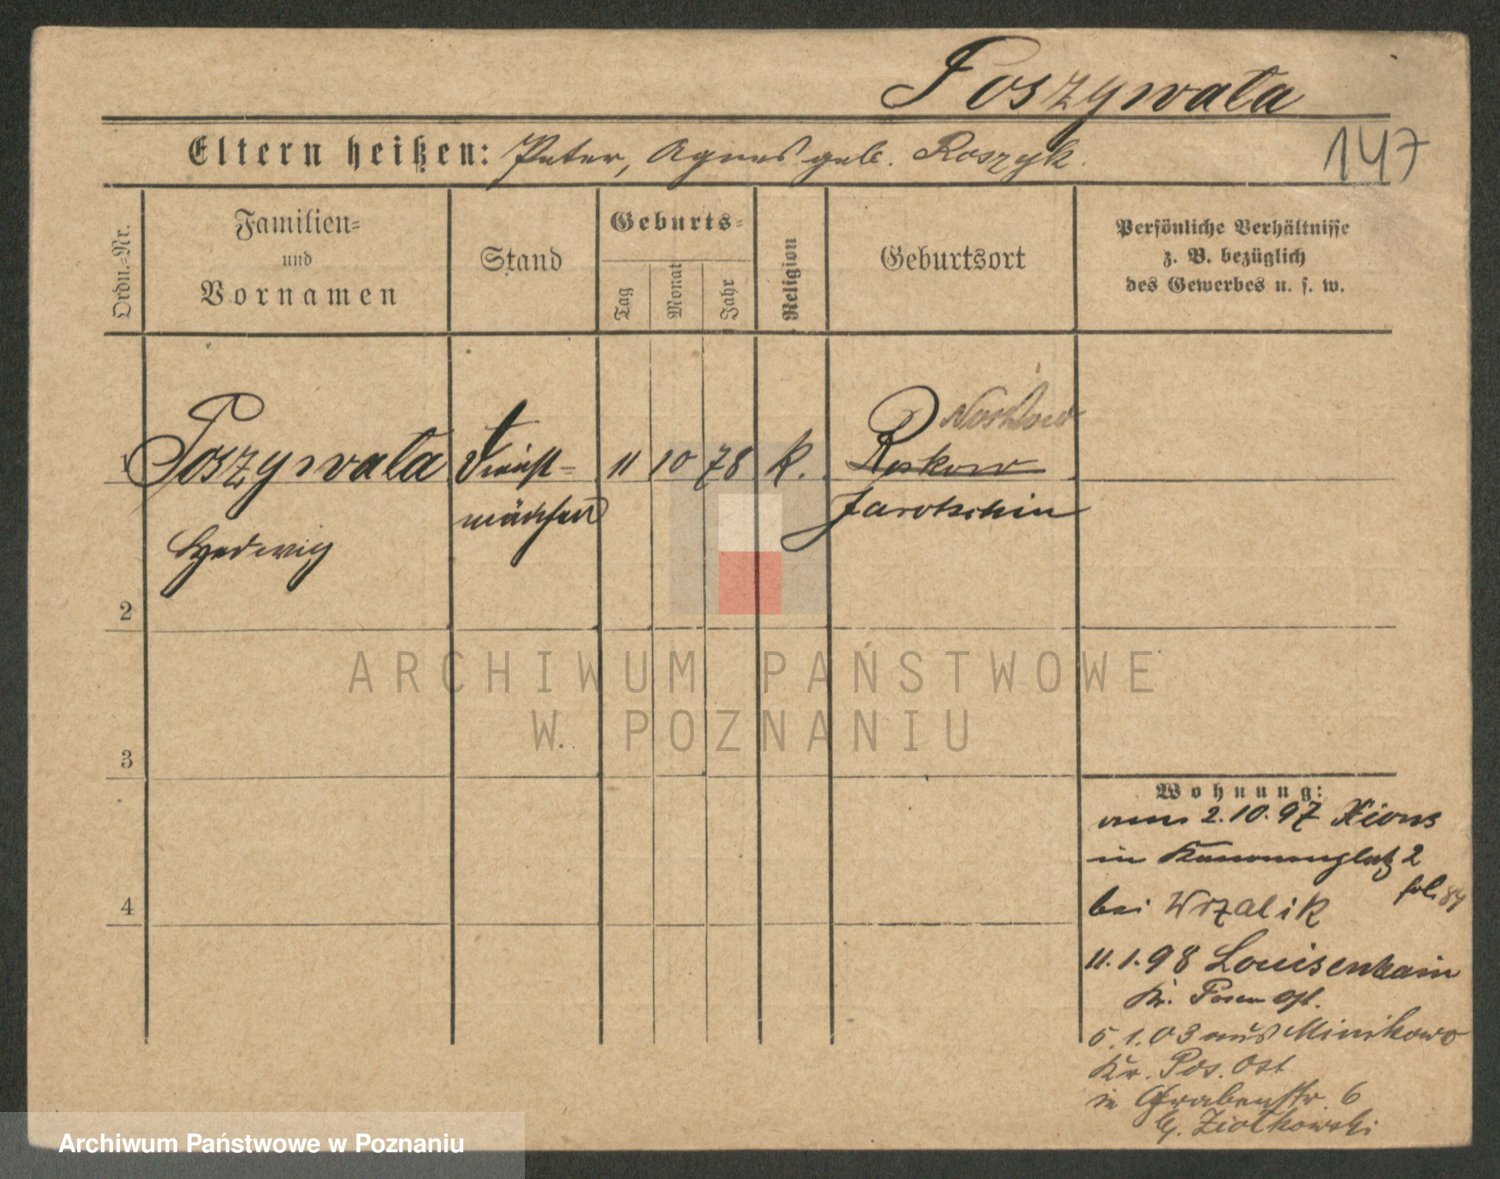 Poszywała
147
Eltern heißen: Peter, Agnes geb. Roszyk.
Ordn.-Nr.
Familien-
und
Vornamen
Stand
Geburts-
Tag
Monat
Jahr
Religion
Geburtsort
Persönliche Verhältnisse
z. B. bezüglich
des Gewerbes u. s. w.
Noskow
1 Poszywała Dienst- 11 10 78 K. Roskow
mädchen Jarotschin
Hedwig
2
3
4
Wohnung:
vom 2.10.97 Xions
in Kanonenplatz 2
bei Wrzalik fol. 84
11.1.98 Louisenhain
Kr. Posen Ost.
5.1.03 aus Minikowo
Kr. Pos. Ost
in Grabenstr. 6
b. Ziolkowski
ARCHIWUM PAŃSTWOWE
W POZNANIU
Archiwum Państwowe w Poznaniu